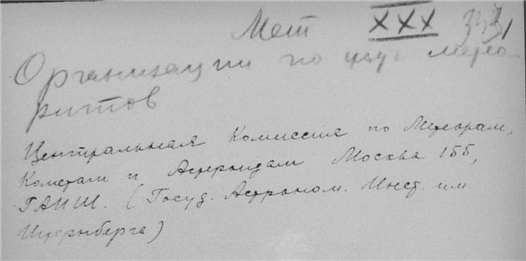 Мет XXX
Организации по изуч метео-
ритов
Центральная Комиссия по Метеорам,
Кометам и Астероидам Москва 155,
ГАИШ. (Госуд. Астроном. Инст. им.
Штернберга)